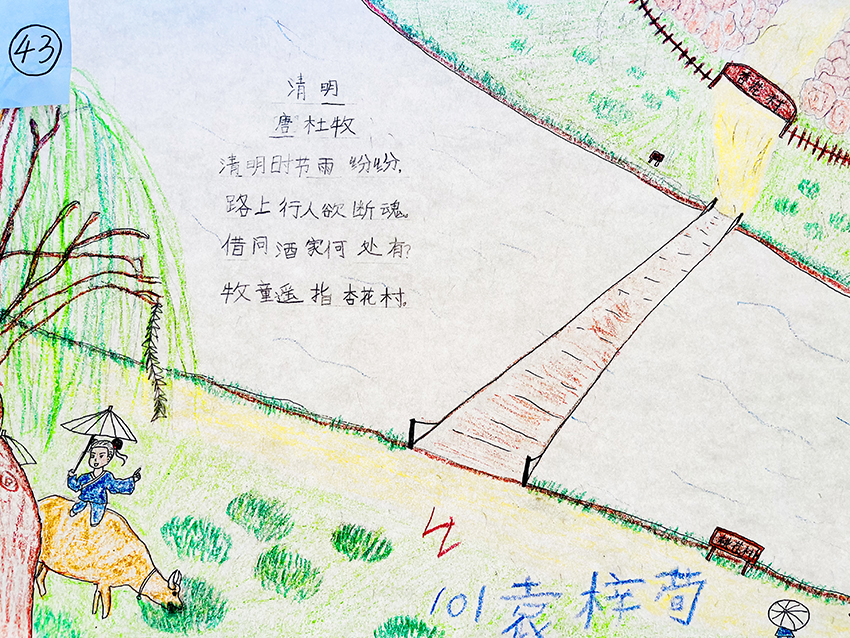 43
清明
唐 杜牧
清明时节雨纷纷,
路上行人欲断魂。
借问酒家何处有?
牧童遥指杏花村。
杏花村
杏花村
4
101 袁梓荀